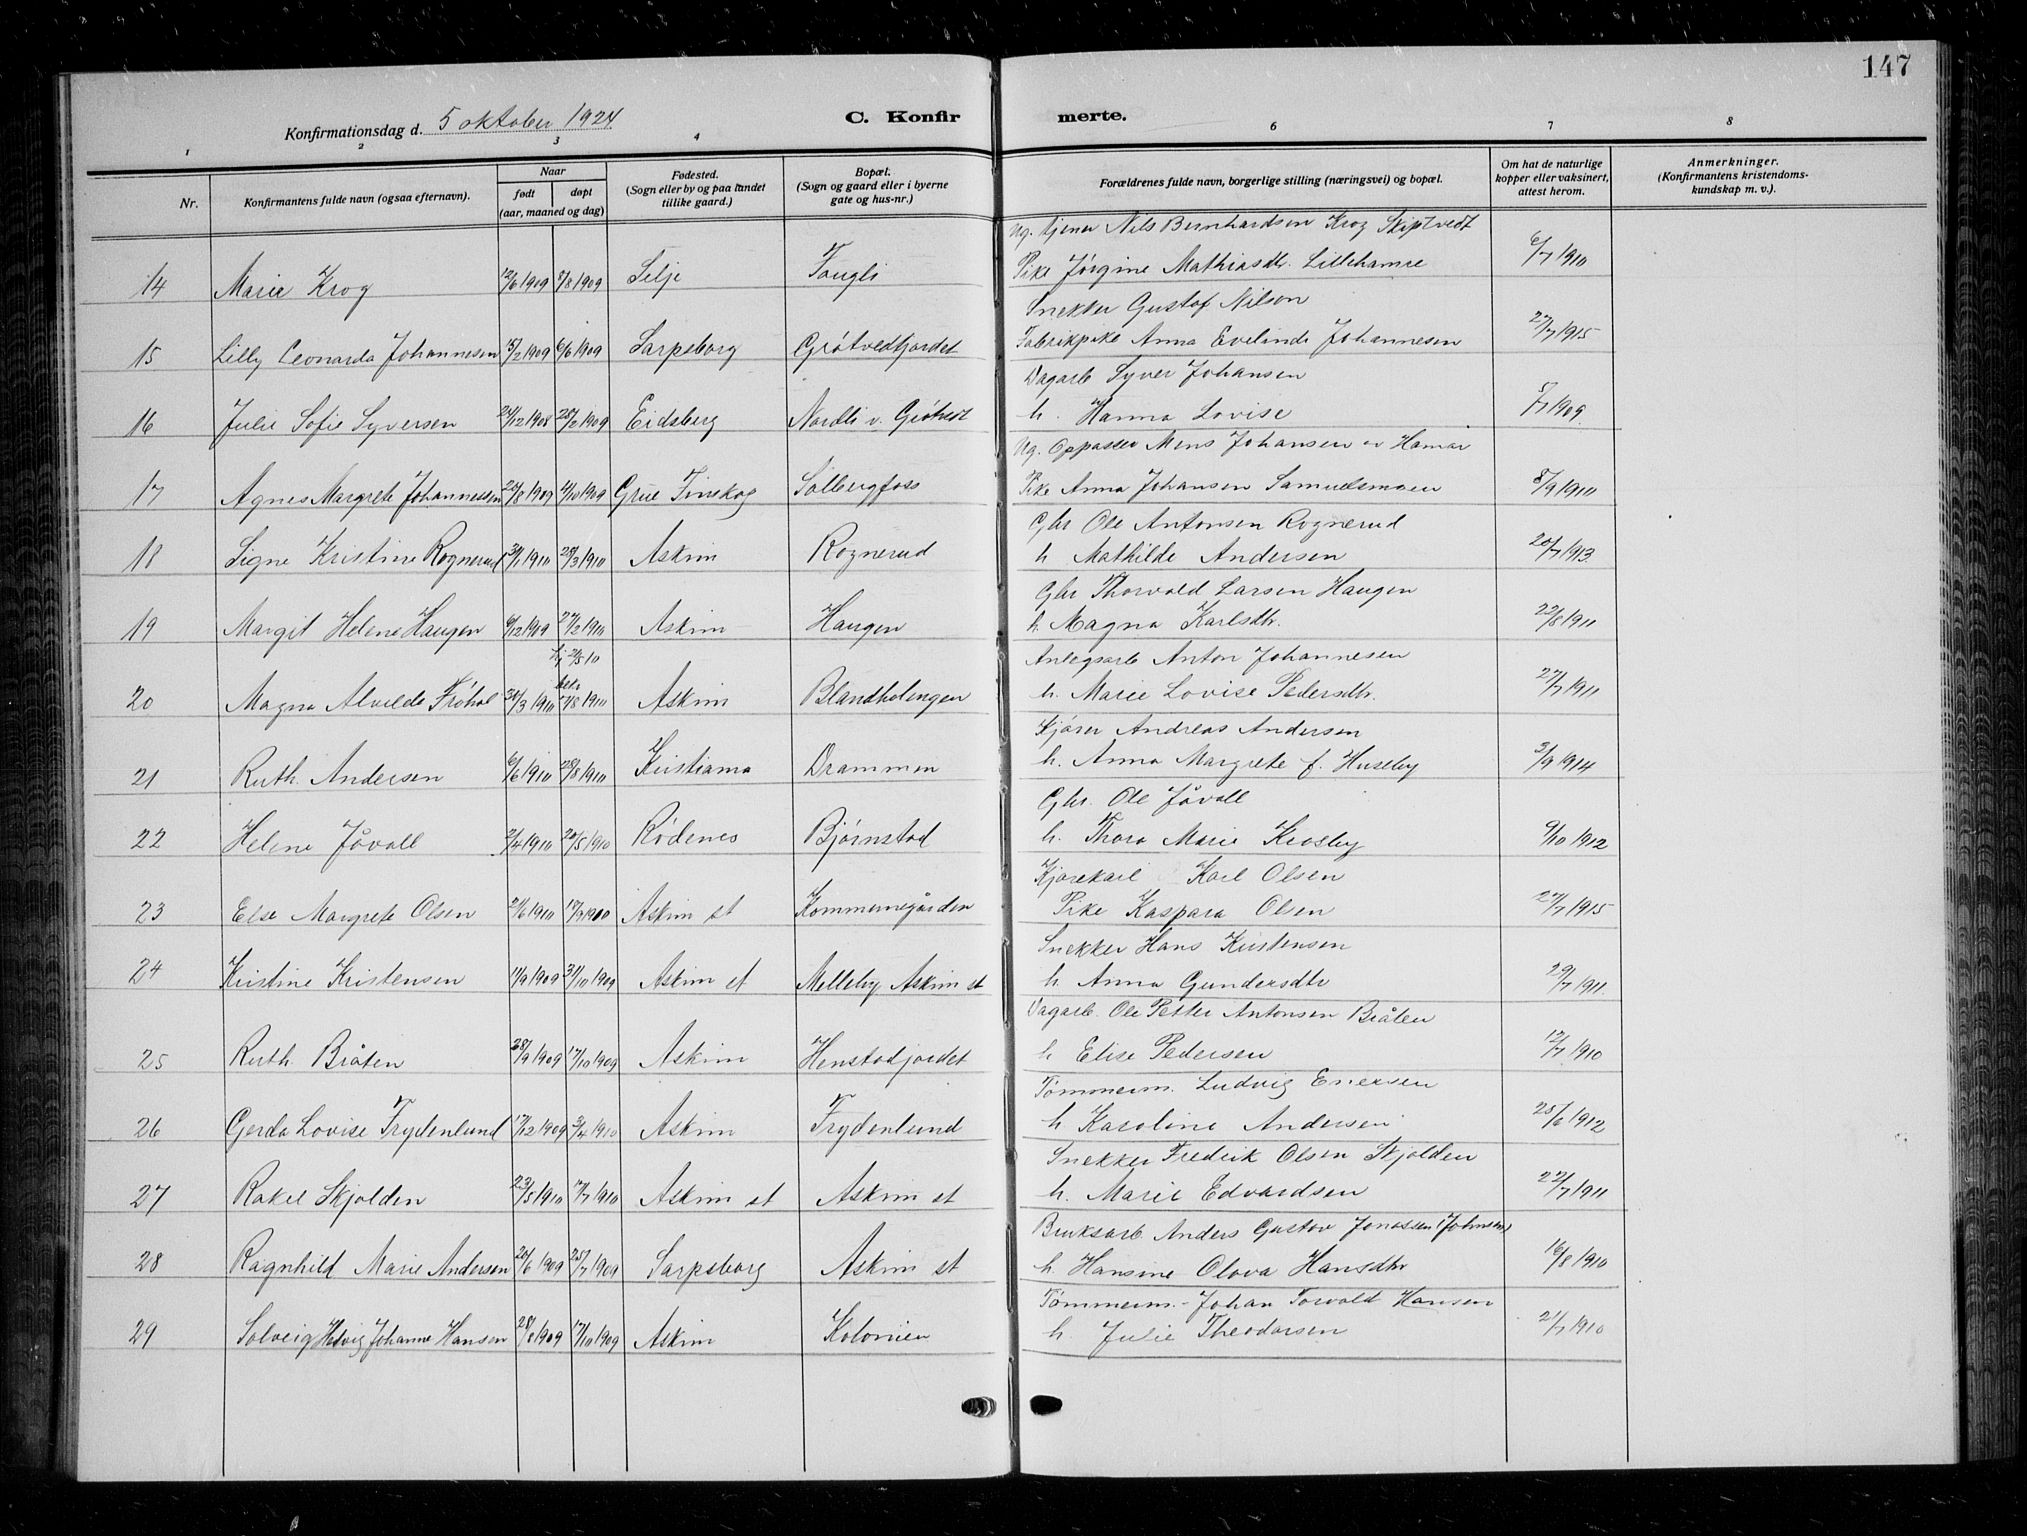 147
Konfirmationsdag d. 5 oktober 1924.
C. Konfir merte.
1 2 3 4 6 7 8
Nr.
Konfirmantens fulde navn (ogsaa efternavn).
Naar
født døpt
(aar, maaned og dag)
Fødested.
(Sogn eller by og paa landet
tillike gaard.)
Bopæl.
(Sogn og gaard eller i byerne
gate og hus-nr.)
Forældrenes fulde navn, borgerlige stilling (næringsvei) og bopæl.
Om hat de naturlige
kopper eller vaksinert,
attest herom.
Anmerkninger.
(Konfirmantens kristendoms-
kundskap m. v.).
Ug. tjener Nils Bernhardsen Krog Skiptvedt
14 Marie Krog 12/6 1909 8/8 1909 Silje Fougli Pike Jørgine Mathiasdtr. Lillehamre 6/7 1910
Snekker Gustaf Nilson
15 Lilly Leonarda Johannesen 15/2 1909 6/6 1909 Sarpsborg Grötvedtjordet Fabrikpike Anna Evelinde Johannesen 27/7 1915
Dagarb Syver Johansen
16 Julie Sofie Syversen 24/12 1908 28/2 1909 Eidsberg Nordli v. Grötvedt h. Hanna Lovise 8/7 1909.
Ug. Oppasser Mons Johansen av Hamar
17 Agnes Margrete Johannessen 20/8 1909 4/10 1909 Grue Finskog Solbergfoss Pike Anna Johansen Samuelsmoen 8/9 1910
Gbr Ole Antonsen Rognerud
18 Signe Kristine Rognerud 31/1 1910 28/3 1910 Askim Rognerud h Mathilde Andersen 20/7 1913.
Gbr Thorvald Larsen Haugen
19 Margit Helene Haugen 6/12 1909 27/2 1910 Askim Haugen h. Magna Karlsdtr. 22/8 1911
hj 2/5 10
Anlegsarb Anton Johannesen
20 Magna Alvilde Fröhol 30/3 1910 bekr 14/8 1910 Askim Blandkolingen h. Marie Lovise Pedersdtr. 27/7 1911
Kjører Andreas Andersen
21 Ruth Andersen 6/6 1910 28/8 1910 Kristiania Drammen h. Anna Margrete f. Huseby 3/9 1914
Gbr. Ole Jåvall
22 Helene Jåvall 2/4 1910 20/5 1910 Rødenes Bjørnstad h. Thora Marie Krosby 9/10 1912
Kjørekarl Karl Olsen
23 Else Margrete Olsen 21/6 1910 18/9 1910 Askim st Kommunegården Pike Kaspara Olsen 27/7 1915
Snekker Hans Kristensen
24 Kristine Kristensen 11/9 1909 31/10 1909 Askim st Melleby Askim st h Anna Gundersdtr 29/7 1911.
Dagarb. Ole Petter Antonsen Bråten
25 Ruth Bråten 28/9 1909 17/10 1909 Askim Henstadjordet h Elise Pedersen 12/7 1910
Tömmerm. Ludvig Enersen
26 Gerda Lovise Frydenlund 17/12 1909 3/4 1910 Askim Frydenlund h Karoline Andersen 25/6 1912
Snekker Fredrik Olsen Skjolden
27 Rakel Skjolden 23/5 1910 17/7 1910 Askim st Askim st h. Marie Edvardsen 22/7 1911
Bruksarb Anders Gustav Jonassen (Johnsen)
28 Ragnhild Marie Andersen 20/6 1909 25/7 1909 Sarpsborg Askim st h. Hansine Olava Hansdtr 16/8 1910
Tömmerm. Johan Torvald Hansen
29 Solveig Hedvig Johanne Hansen 28/8 1909 17/10 1909 Askim Kolonien h. Julie Theodorsen 21/7 1910